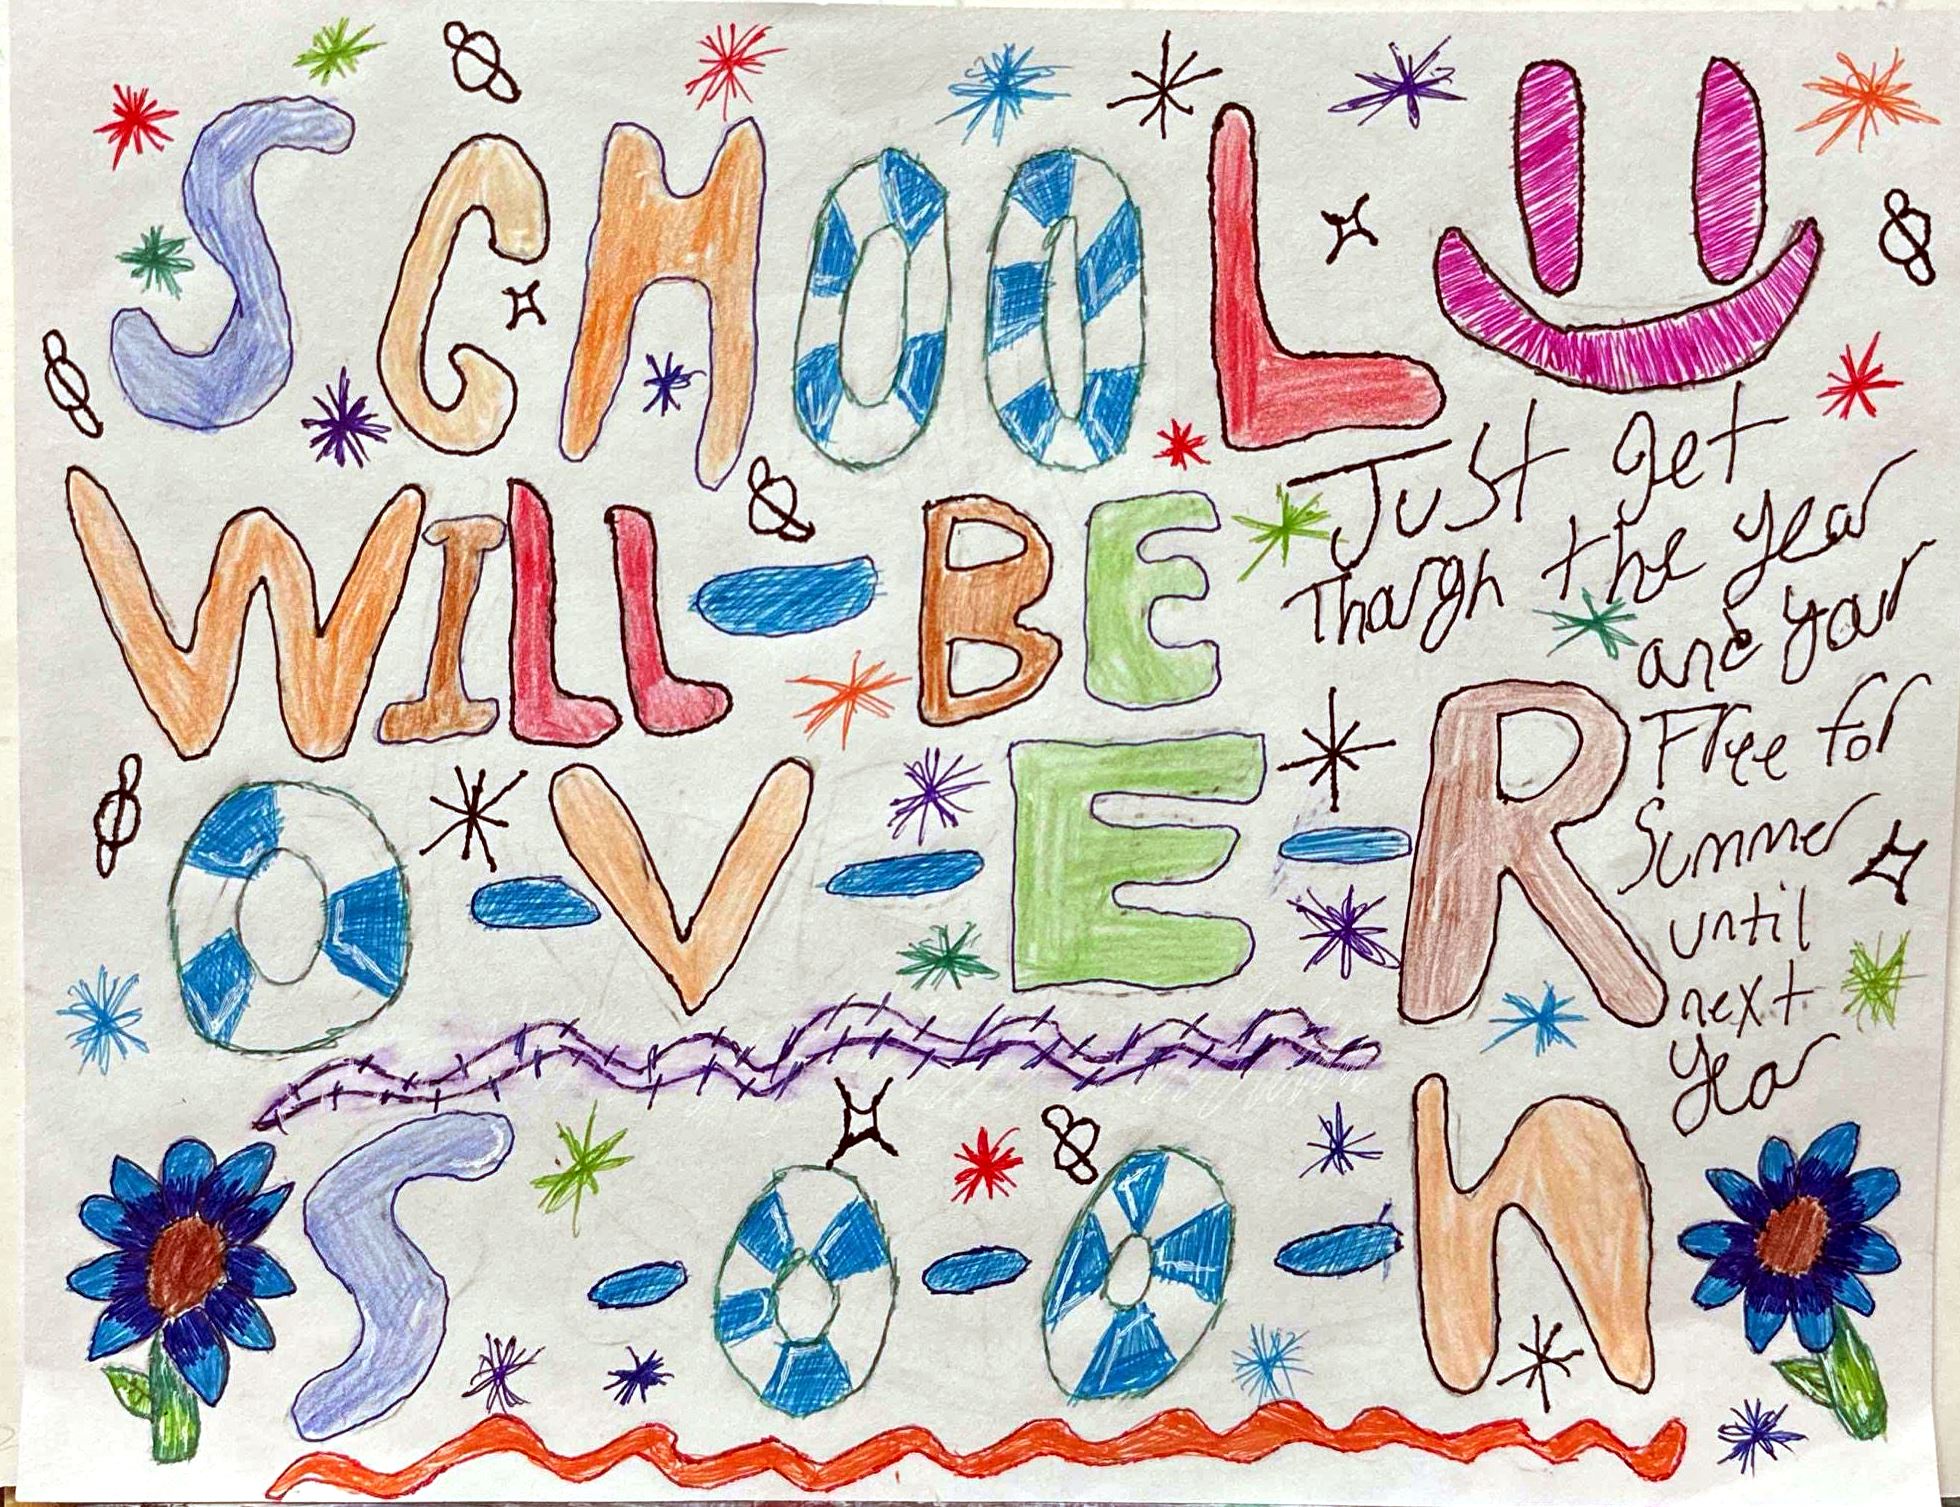 SCHOOL
WILL-BE
O-V-E-R
S-O-O-n
Just get
Thourgh the year
and your
Free for
Summer
until
next
year